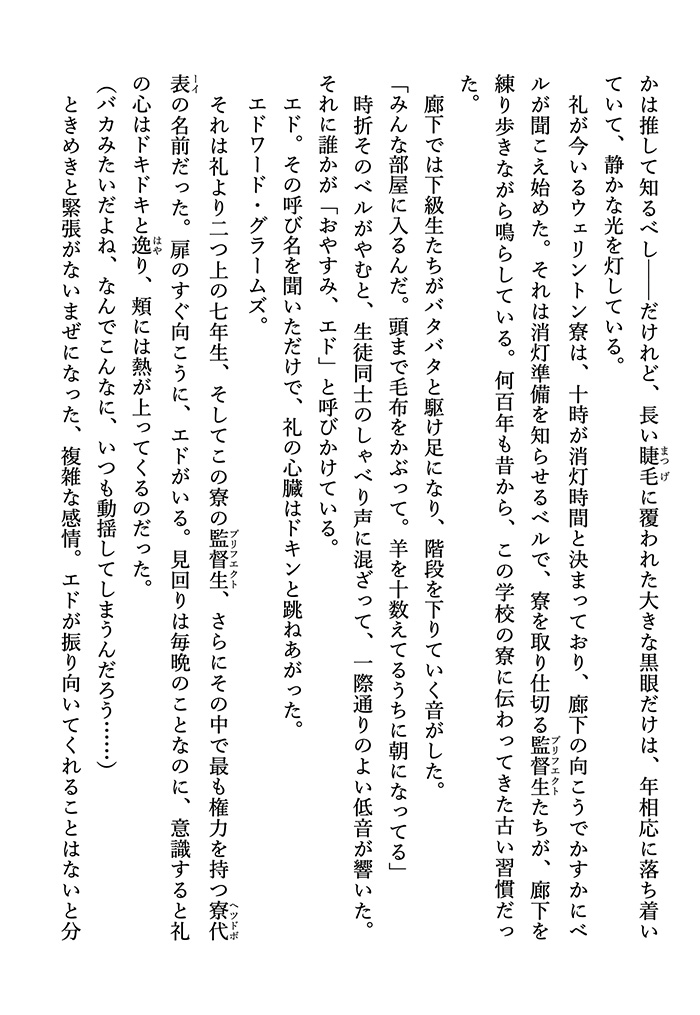 かは推して知るべし――だけれど、長い睫毛に覆われた大きな黒眼だけは、年相応に落ち着い
ていて、静かな光を灯している。
礼が今いるウェリントン寮は、十時が消灯時間と決まっており、廊下の向こうでかすかにベ
ルが聞こえ始めた。それは消灯準備を知らせるベルで、寮を取り仕切る監督生たちが、廊下を
練り歩きながら鳴らしている。何百年も昔から、この学校の寮に伝わってきた古い習慣だっ
た。
廊下では下級生たちがバタバタと駆け足になり、階段を下りていく音がした。
「みんな部屋に入るんだ。頭まで毛布をかぶって。羊を十数えてるうちに朝になってる」
時折そのベルがやむと、生徒同士のしゃべり声に混ざって、一際通りのよい低音が響いた。
それに誰かが「おやすみ、エド」と呼びかけている。
エド。その呼び名を聞いただけで、礼の心臓はドキンと跳ねあがった。
エドワード・グラームズ。
それは礼より二つ上の七年生、そしてこの寮の監督生、さらにその中で最も権力を持つ寮代
表の名前だった。扉のすぐ向こうに、エドがいる。見回りは毎晩のことなのに、意識すると礼
の心はドキドキと逸り、頬には熱が上ってくるのだった。
（バカみたいだよね、なんでこんなに、いつも動揺してしまうんだろう……）
ときめきと緊張がないまぜになった、複雑な感情。エドが振り向いてくれることはないと分